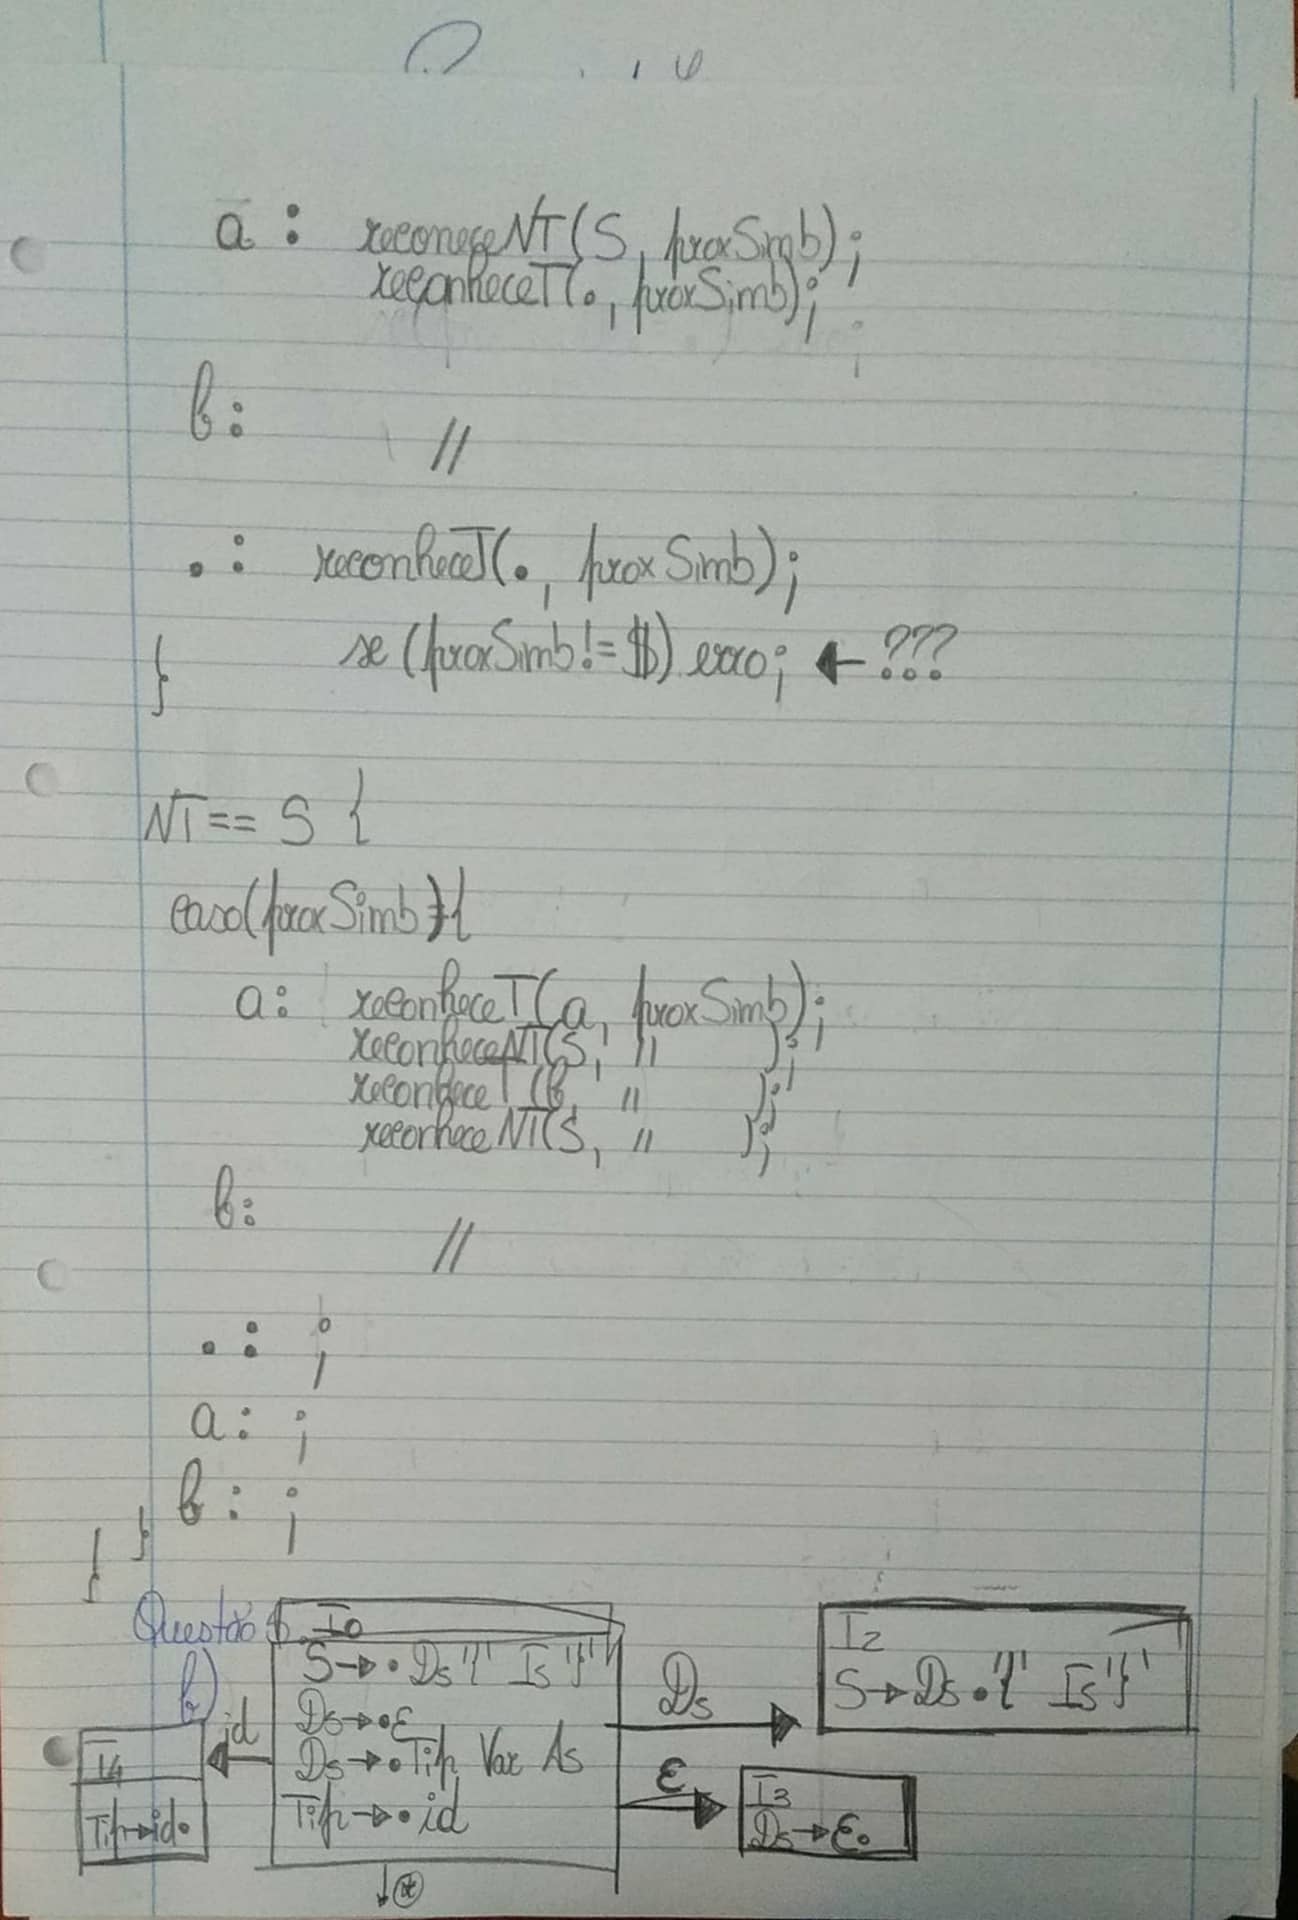 a : reconeceNT(S, proxSimb);
reconheceT(., proxSimb);
b: //
.: reconheceT(., proxSimb);
se (proxSimb != $) erro; ← ???
}
NT == S {
caso(proxSimb){
a: reconheceT(a, proxSimb);
reconheceNT(S, " );
reconheceT(b, " );
reconheceNT(S, " );
b: //
.: ;
a: ;
b: ;
} }
Questão
b)
I0
S → • Ds '{' Is '}'
Ds → •ε
Ds → •Tip Var As
Tip → • id
Ds
I2
S → Ds •'{' Is '}'
ε
I3
Ds → ε•
id
I4
Tip → id•
↓ *